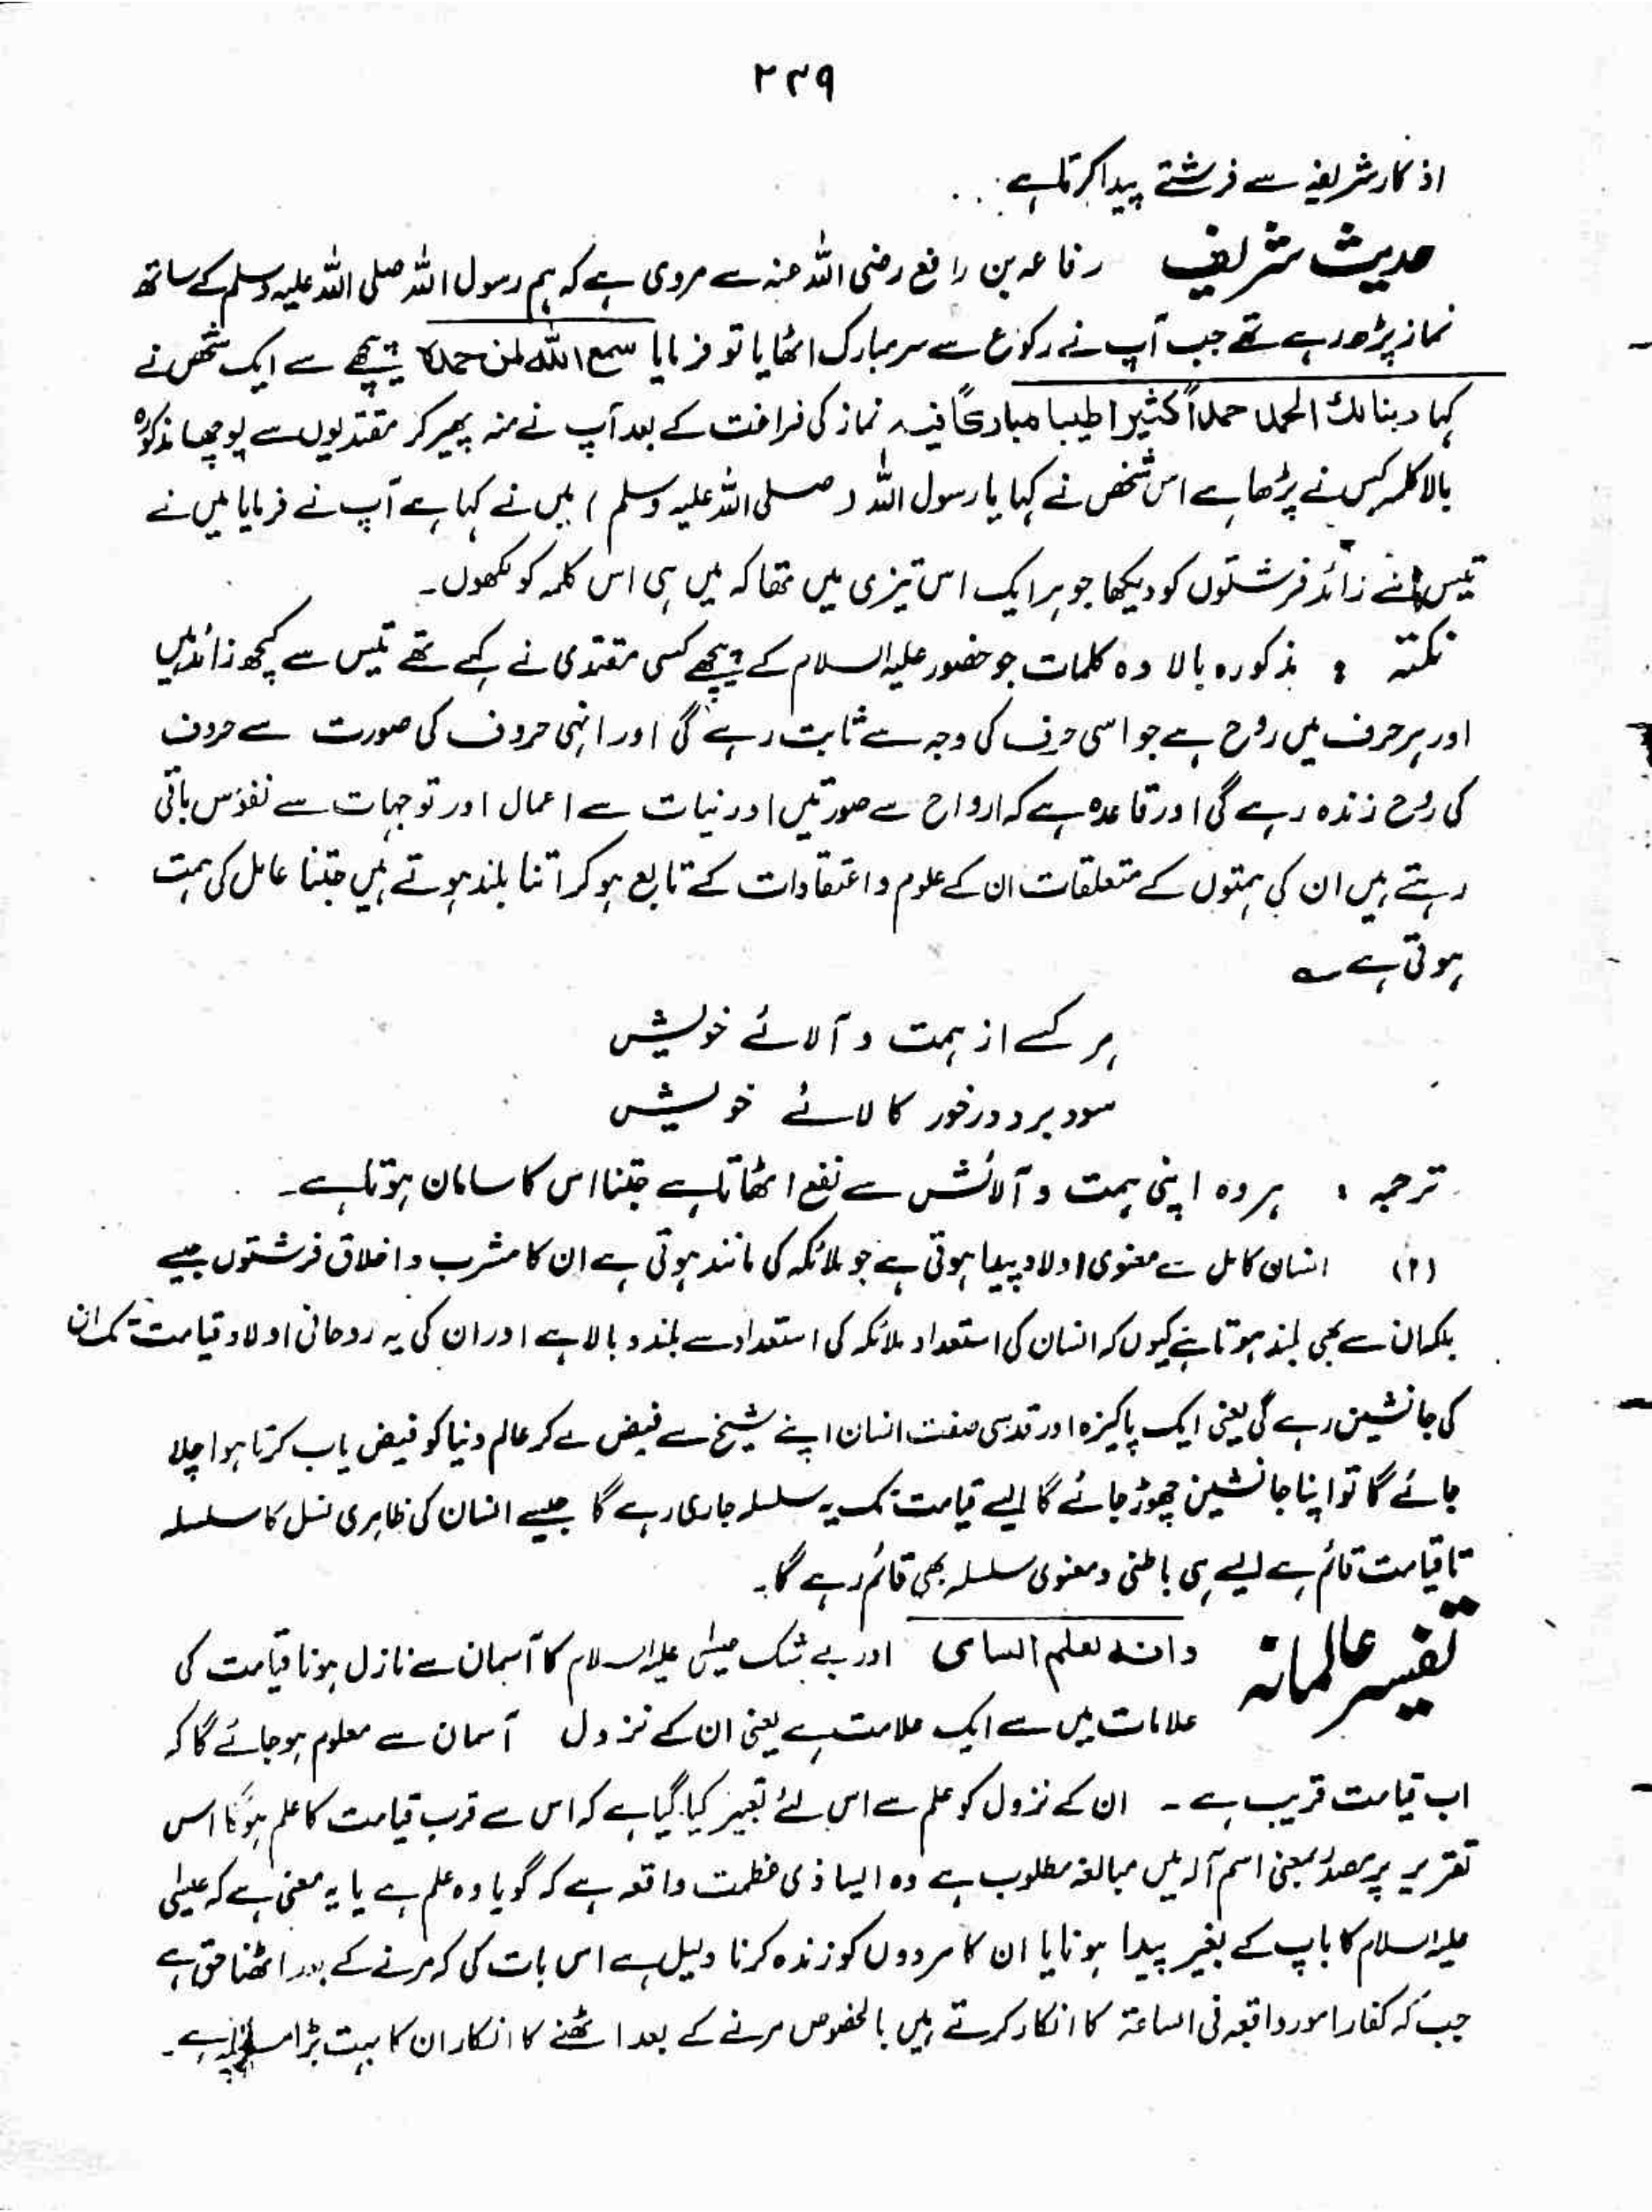 ۲۳۹
اذکار شریفہ سے فرشتے پیدا کرتا ہے ...
حدیث شریف رفاعہ بن رافع رضی اللہ عنہ سے مروی ہے کہ ہم رسول اللہ صلی اللہ علیہ وسلم کے ساتھ
نماز پڑھ رہے تھے جب آپ نے رکوع سے سر مبارک اٹھایا تو فرمایا سمع اللہ لمن حمدہ پیچھے سے ایک شخص نے
کہا ربنا لک الحمد حمداً کثیرا طیبا مبارکاً فیہ نماز کی فراغت کے بعد آپ نے منہ پھیر کر مقتدیوں سے پوچھا مذکورہ
بالا کلمہ کس نے پڑھا ہے اس شخص نے کہا یا رسول اللہ (صلی اللہ علیہ وسلم) میں نے کہا ہے آپ نے فرمایا میں نے
تیس سے زائد فرشتوں کو دیکھا جو ہر ایک اس تیزی میں تھا کہ میں ہی اس کلمہ کو لکھوں۔
نکتہ : مذکورہ بالا وہ کلمات جو حضور علیہ السلام کے پیچھے کسی مقتدی نے کہے تھے تیس سے کچھ زائد ہیں
اور ہر حرف میں روح ہے جو اسی حرف کی وجہ سے ثابت رہے گی اور انہی حروف کی صورت سے حروف
کی روح زندہ رہے گی اور قاعدہ ہے کہ ارواح سے صورتیں اور نیات سے اعمال اور توجہات سے نفوس باقی
رہتے ہیں ان کی ہمتوں کے متعلقات ان کے علوم و اعتقادات کے تابع ہو کر اتنا بلند ہوتے ہیں جتنا عامل کی ہمت
ہوتی ہے ؎
ہر کسے از ہمت و آلائے خویش
سود برد درخور کالائے خویش
ترجمہ : ہر وہ اپنی ہمت و آلائش سے نفع اٹھاتا ہے جتنا اس کا سامان ہوتا ہے۔
(۲) انسان کامل سے معنوی اولاد پیدا ہوتی ہے جو ملائکہ کی مانند ہوتی ہے ان کا مشرب و اخلاق فرشتوں جیسے
بلکہ ان سے بھی بلند ہوتا ہے کیوں کہ انسان کی استعداد ملائکہ کی استعداد سے بلند و بالا ہے اور ان کی یہ روحانی اولاد قیامت تک ان
کی جانشین رہے گی یعنی ایک پاکیزہ اور قدسی صفت انسان اپنے شیخ سے فیض لے کر عالم دنیا کو فیض یاب کرتا ہوا چلا
جائے گا تو اپنا جانشین چھوڑ جائے گا ایسے قیامت تک یہ سلسلہ جاری رہے گا جیسے انسان کی ظاہری نسل کا سلسلہ
تا قیامت قائم ہے ایسے ہی باطنی و معنوی سلسلہ بھی قائم رہے گا۔
تفسیر عالمانہ وانہ لعلم الساعۃ اور بے شک عیسٰی علیہ السلام کا آسمان سے نازل ہونا قیامت کی
علامات میں سے ایک علامت ہے یعنی ان کے نزول آسمان سے معلوم ہو جائے گا کہ
اب قیامت قریب ہے۔ ان کے نزول کو علم سے اس لئے تعبیر کیا گیا ہے کہ اس سے قرب قیامت کا علم ہوگا اس
تقریر پر مصدر بمعنی اسم آلہ میں مبالغہ مطلوب ہے وہ ایسا ذی عظمت واقعہ ہے کہ گویا وہ علم ہے یا یہ معنی ہے کہ عیسٰی
علیہ السلام کا باپ کے بغیر پیدا ہونا یا ان کا مردوں کو زندہ کرنا دلیل ہے اس بات کی کہ مرنے کے بعد اٹھنا حق ہے
جب کہ کفار امور واقعہ فی الساعۃ کا انکار کرتے ہیں بالخصوص مرنے کے بعد اٹھنے کا انکار ان کا بہت بڑا ہے۔